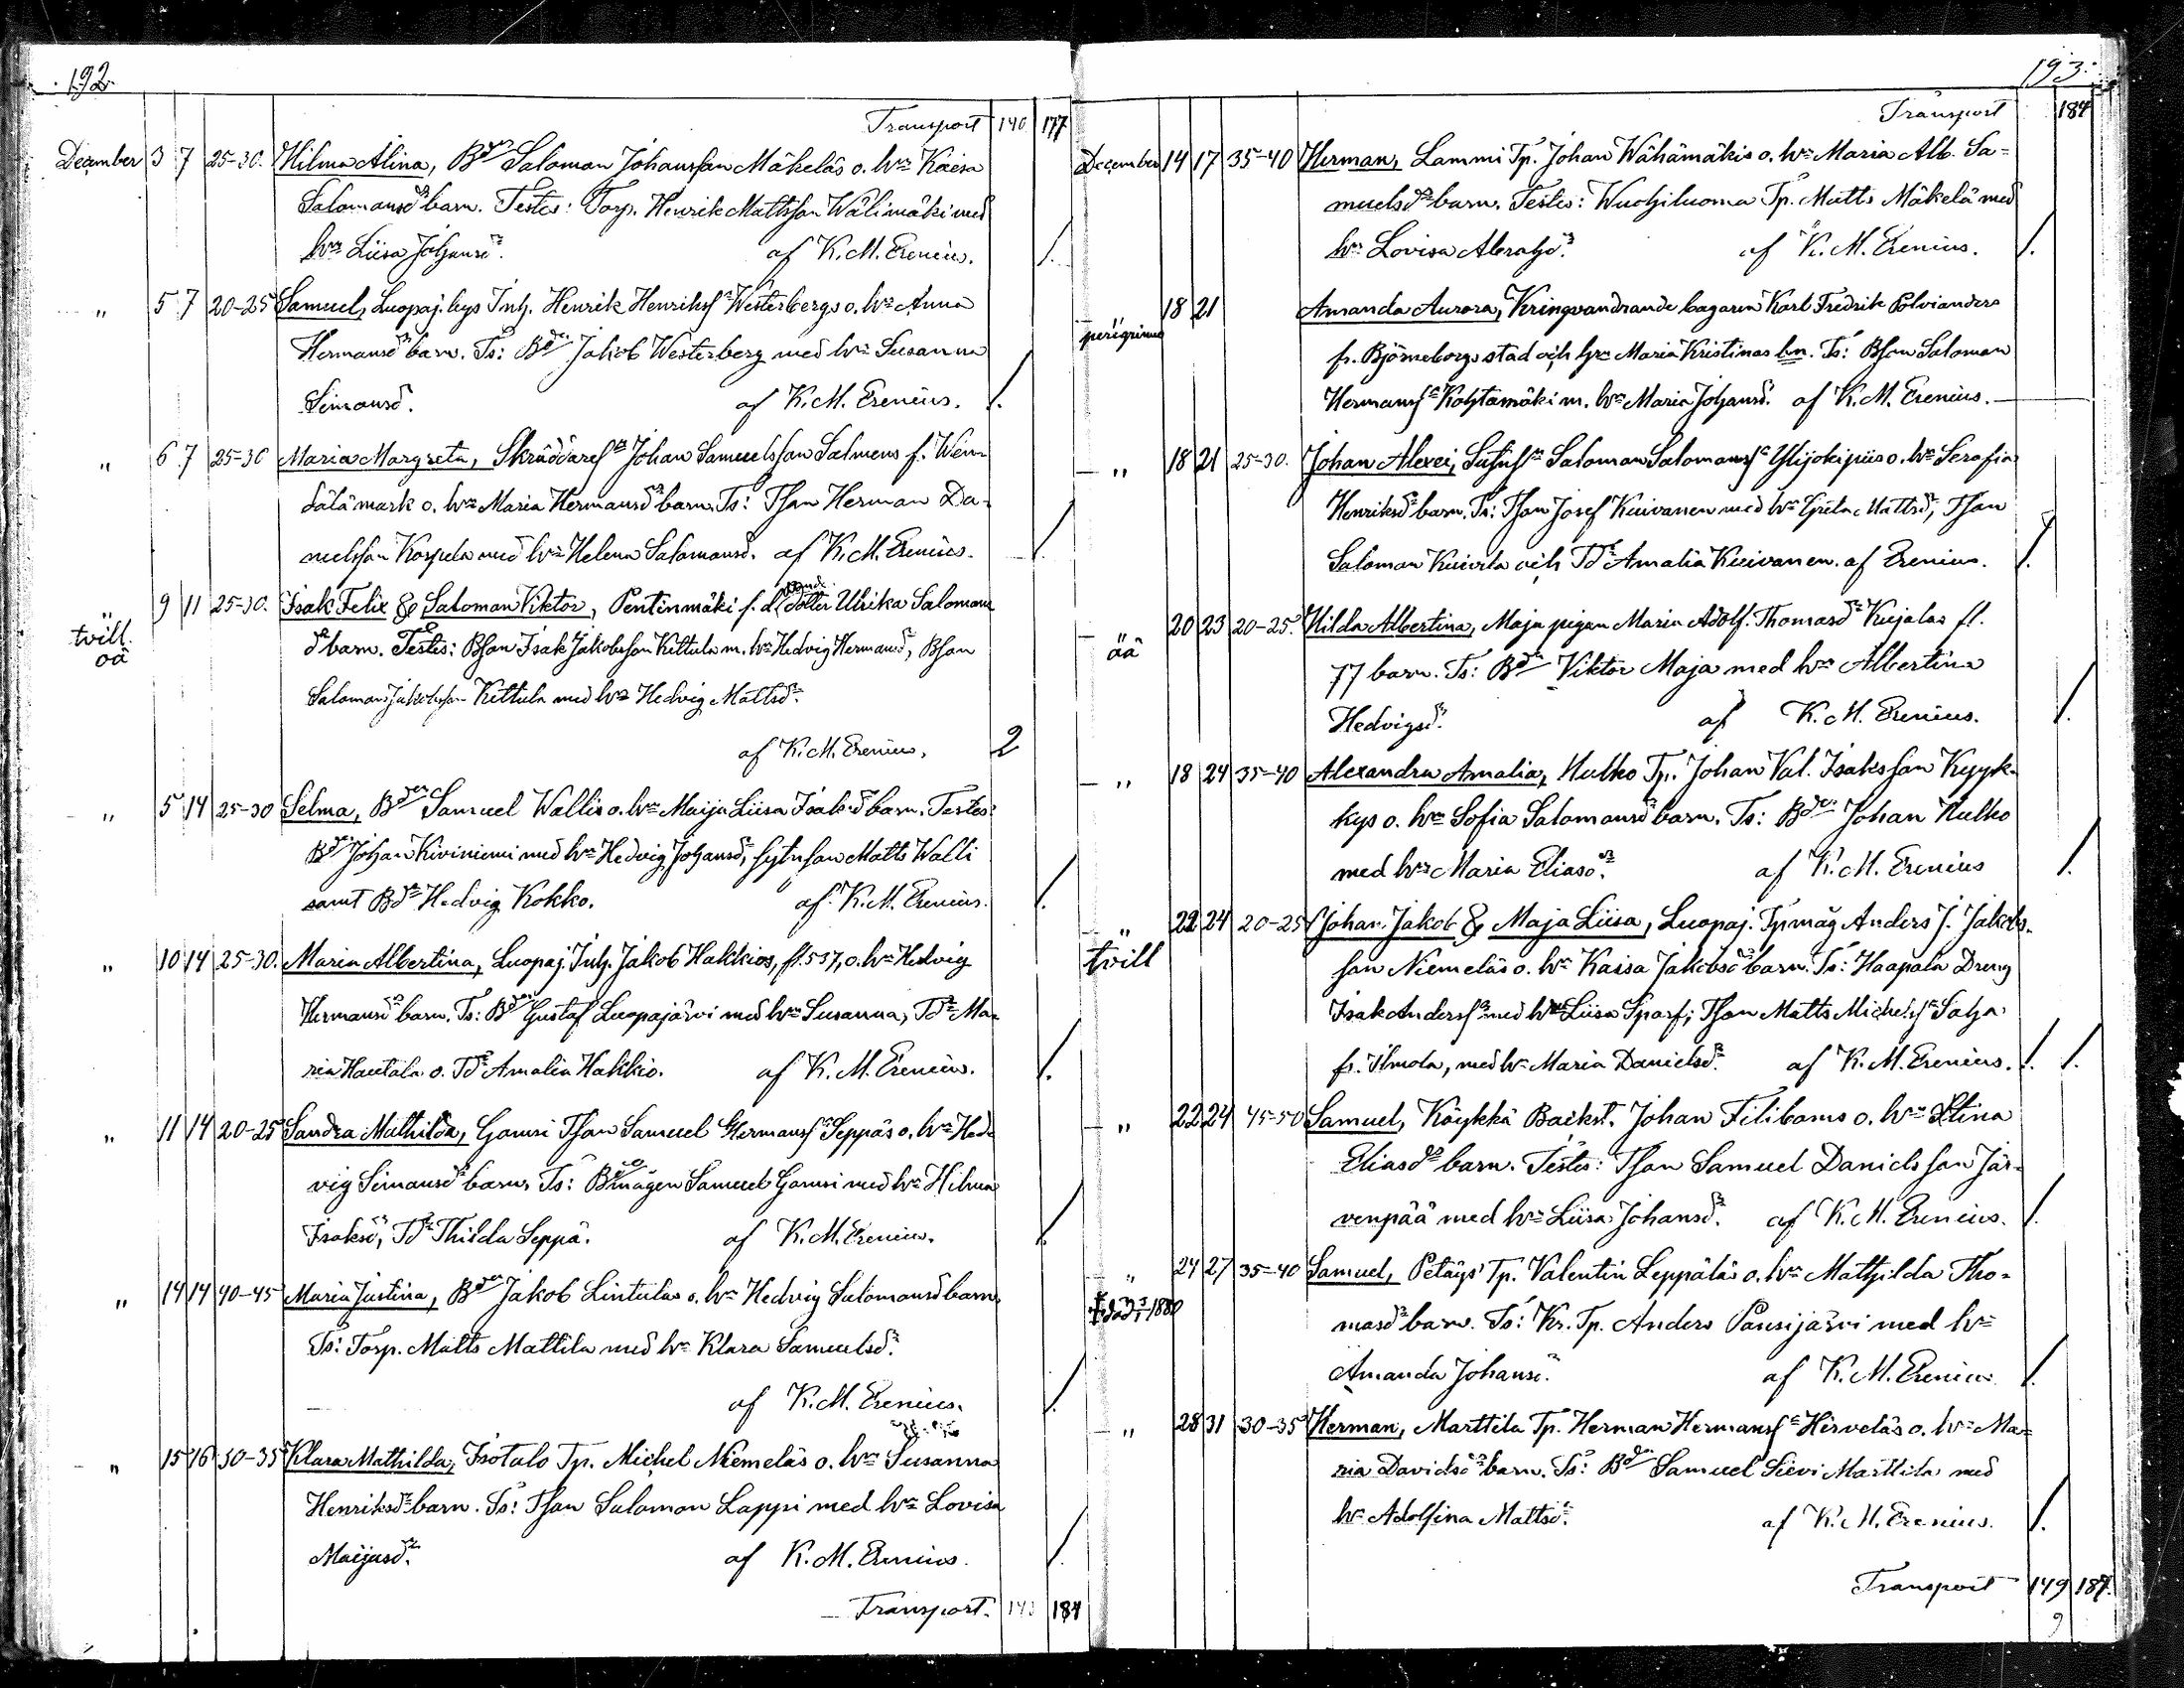 192.
Transport 140 177
December 3 7 25-30. Hilma Alina, Bdn Saloman Johansson Mäkeläs o. hrs Kaisa
Salomansdr barn. Testes: Torp. Henrik Mattsson Wälimäki med
hrs Liisa Johansd. af K. M. Erenius. /.
" 5 7 20-25 Samuel, Luopaj. bys Inh. Henrik Henrikss Westerbergs o. hrs Anna
Hermansd barn. Ts: Bdn Jakob Westerberg med hrs Susanna
Simansd. af K. M. Erenius. /.
" 6 7 25-30 Maria Margreta, Skräddares Johan Samuelsson Salmens f.
mark o. hrs Maria Hermansd barn. Ts: Tson Herman Da-
nielsson Korpela med hrs Helena Salomansd. af K. M. Erenius. /
" 9 11 25-30. Isak Felix & Saloman Viktor, Pentinmäki f. d. dotter Ulrika Salomans
tvill.
oä
d barn. Testes: Bson Isak Jakobsson Kettula m. hrs Hedvig Hermansd, Bson
Saloman Jakobsson Kettula med hrs Hedvig Mattsd.
af K. M. Erenius. 2
" 5 14 25-30 Selma, Bdn Samuel Wallis o. hrs Maija Liisa Isaksd barn. Testes:
Bd Johan Kiviniemi med hrs Hedvig Johansd, Matts Walli
samt Bd Hedvig Kokko. af K. M. Erenius. /.
" 10 14 25-30. Maria Albertina, Luopaj. Inh. Jakob Hakkios, fl. 537, o. hrs Hedvig
Hermansd barn. Ts: Bdn Gustaf Luopajärvi med hrs Susanna, Td Ma-
ria Hautala o. Td Amalia Hakkio. af K. M. Erenius. /.
" 11 14 20-25 Sandra Mathilda, Gamri Tson Samuel Hermanss Seppäs o. hrs Hed-
vig Simansd barn. Ts: Bmågen Samuel Gamri med hrs Hilma
Isaksd, Td Thilda Seppä. af K. M. Erenius. /.
" 14 14 40-45 Maria Justina, Bdn Jakob Lintulas o. hrs Hedvig Salomansd barn.
Ts: Torp. Matts Mattila med hrs Klara Samuelsd.
af K. M. Erenius. /.
" 15 16 30-35 Klara Mathilda, Isotalo Tp. Michel Niemeläs o. hrs Susanna
Henriksd barn. Ts: Tson Saloman Lappi med hrs Lovisa
Maijasd. af K. M. Erenius. /.
Transport. 184
193.
Transport 184
December 14 17 35-40 Herman, Lammi Tp. Johan Wähämäkis o. hrs Maria Alb. Sa-
muelsd barn. Testes: Wuohiluoma Tp. Matts Mäkelä med
hrs Lovisa Abrahd. af K. M. Erenius. /.
" 18 21 Amanda Aurora, Kringvandrande bagaren Karl Fredrik Polvianders
peregrinus
fr. Björneborgs stad och hrs Maria Kristinas bn. Ts: Bson Saloman
Hermanss Kohtamäki m. hrs Maria Johansd. af K. M. Erenius.
" 18 21 25-30. Johan Alexei, Saloman Salomanss Ylijokipiis o. hrs Serafia
Henriksd barn. Ts: Tson Josef Kuivanen med hrs Greta Mattsd, Tson
Saloman Kuivila och Td Amalia Kuivanen. af Erenius. /.
" 20 23 20-25. Hilda Albertina, Maja pigan Maria Adolf. Thomasd Kujalas fl.
äå
77 barn. Ts: Bdn Viktor Maja med hrs Albertina
Hedvigsd. af K. M. Erenius. /.
" 18 24 35-40 Alexandra Amalia, Hulko Tp. Johan Val. Isaksson Kyyk-
kys o. hrs Sofia Salomansd barn. Ts: Bdn Johan Hulko
med hrs Maria Eliasd. af K. M. Erenius /.
" 22 24 20-25 Johan Jakob & Maja Liisa, Luopaj. Tpmåg Anders J. Jakobs-
tvill
son Niemeläs o. hrs Kaisa Jakobsd barn. Ts: Haapala Dreng
Isak Anderss med hrs Liisa Sparf; Tson Matts Michelss Salja
fr. Ilmola, med hrs Maria Danielsd. af K. M. Erenius. /. /.
" 22 24 45-50 Samuel, Köykkä Backst. Johan Filibams o. hrs Stina
Eliasd barn. Testes: Tson Samuel Danielsson Jär-
venpää med hrs Liisa Johansd. af K. M. Erenius. /.
" 24 27 35-40 Samuel, Petäys Tp. Valentin Leppäläs o. hrs Mathilda Tho-
† död 1880
masd barn. Ts: Kr. Tp. Anders Pansijärvi med hrs
Amanda Johansd. af K. M. Erenius /.
" 28 31 30-35 Herman, Marttila Tp. Herman Hermanss Hirveläs o. hrs Ma-
ria Davidsd barn. Ts: Bdn Samuel Sievi Marttila med
hrs Adolfina Mattsd. af K. M. Erenius. /.
Transport 149 187.
9